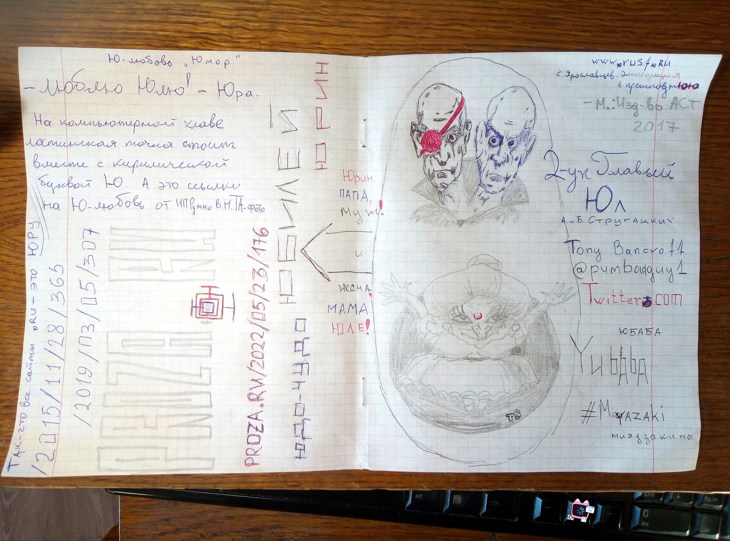 Ю-любовь "Юмор"
- Люблю Юлю! - Юра.
На компьютерной клаве
латинская точка стоит
вместе с кирилической
буквой Ю. А это ссылки
на Ю-любовь от
Так-что все сайты .RU - это ЮРУ
/2015/11/28/365
/2019/03/05/307
PROZA.RU
PROZA.RU/2022/05/23/176
ЮДО-ЧУДО
ЮБИЛЕЙ
ЮРИН
Юрин
ПАПА,
муж!
и
жена,
МАМА
ЮЛЕ!
С. Ярославцев. Экспедиция
в преисподнюю
- М.: Изд-во АСТ
2017
2-ух Главый
Юл
А. и Б. Стругацких
Tony Bancroft
@pumbaaguy1
Twitter.com
ЮБАБА
Yubaba
#Miyazaki
миядзакина